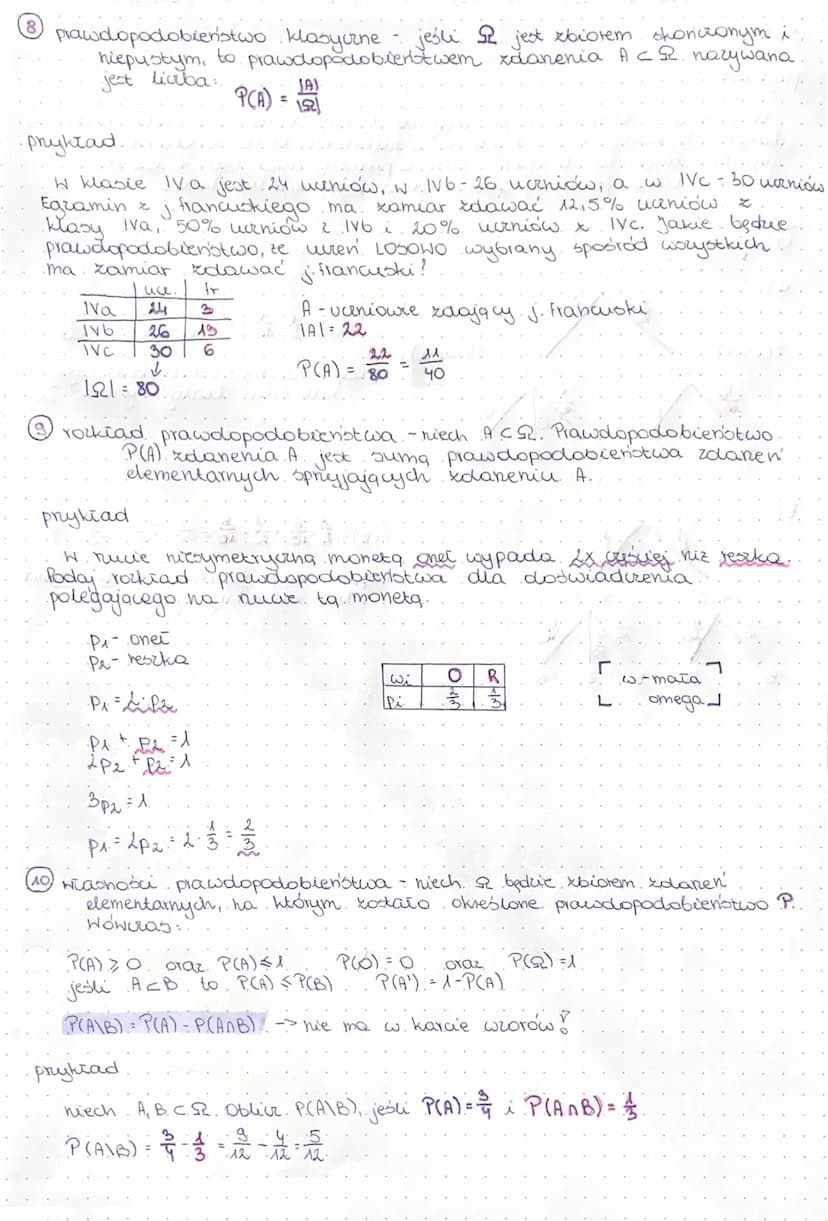 8 prawdopodobieństwo klasyczne - jeśli Ω jest zbiorem skończonym i
niepustym, to prawdopodobieństwem zdarzenia A ⊂ Ω nazywana
jest liczba:
P(A) = |A| / |Ω|
przykład
W klasie IVa jest 24 uczniów, w IVb - 26 uczniów, a w IVc - 30 uczniów
Egzamin z j. francuskiego ma zamiar zdawać 12,5% uczniów z
klasy IVa, 50% uczniów z IVb i 20% uczniów z IVc. Jakie będzie
prawdopodobieństwo, że uczeń LOSOWO wybrany spośród wszystkich
ma zamiar zdawać j. francuski?
ucz. fr
IVa 24 3
IVb 26 13
IVc 30 6
↓
|Ω| = 80
A - uczniowie zdający j. francuski
|A| = 22
P(A) = 22/80 = 11/40
9 rozkład prawdopodobieństwa - niech A ⊂ Ω. Prawdopodobieństwo
P(A) zdarzenia A jest sumą prawdopodobieństwa zdarzeń
elementarnych sprzyjających zdarzeniu A.
przykład
W rzucie niesymetryczną monetą orzeł wypada 2x częściej niż reszka.
Podaj rozkład prawdopodobieństwa dla doświadczenia
polegającego na rzucie tą monetą.
p1 - orzeł
p2 - reszka
p1 = 2·p2
p1 + p2 = 1
2p2 + p2 = 1
3p2 = 1
p1 = 2p2 = 2 · 1/3 = 2/3
ωi O R
pi 2/3 1/3
ω - mała
omega
10 własności prawdopodobieństwa - niech Ω będzie zbiorem zdarzeń
elementarnych, na którym zostało określone prawdopodobieństwo P.
Wówczas:
P(A) ≥ 0 oraz P(A) ≤ 1 P(∅) = 0 oraz P(Ω) = 1
jeśli A ⊂ B to P(A) ≤ P(B) P(A') = 1 - P(A)
P(A\B) = P(A) - P(A∩B) -> nie ma w karcie wzorów!
przykład
niech A, B ⊂ Ω. Oblicz P(A\B), jeśli P(A) = 3/4 i P(A∩B) = 1/3
P(A\B) = 3/4 - 1/3 = 9/12 - 4/12 = 5/12